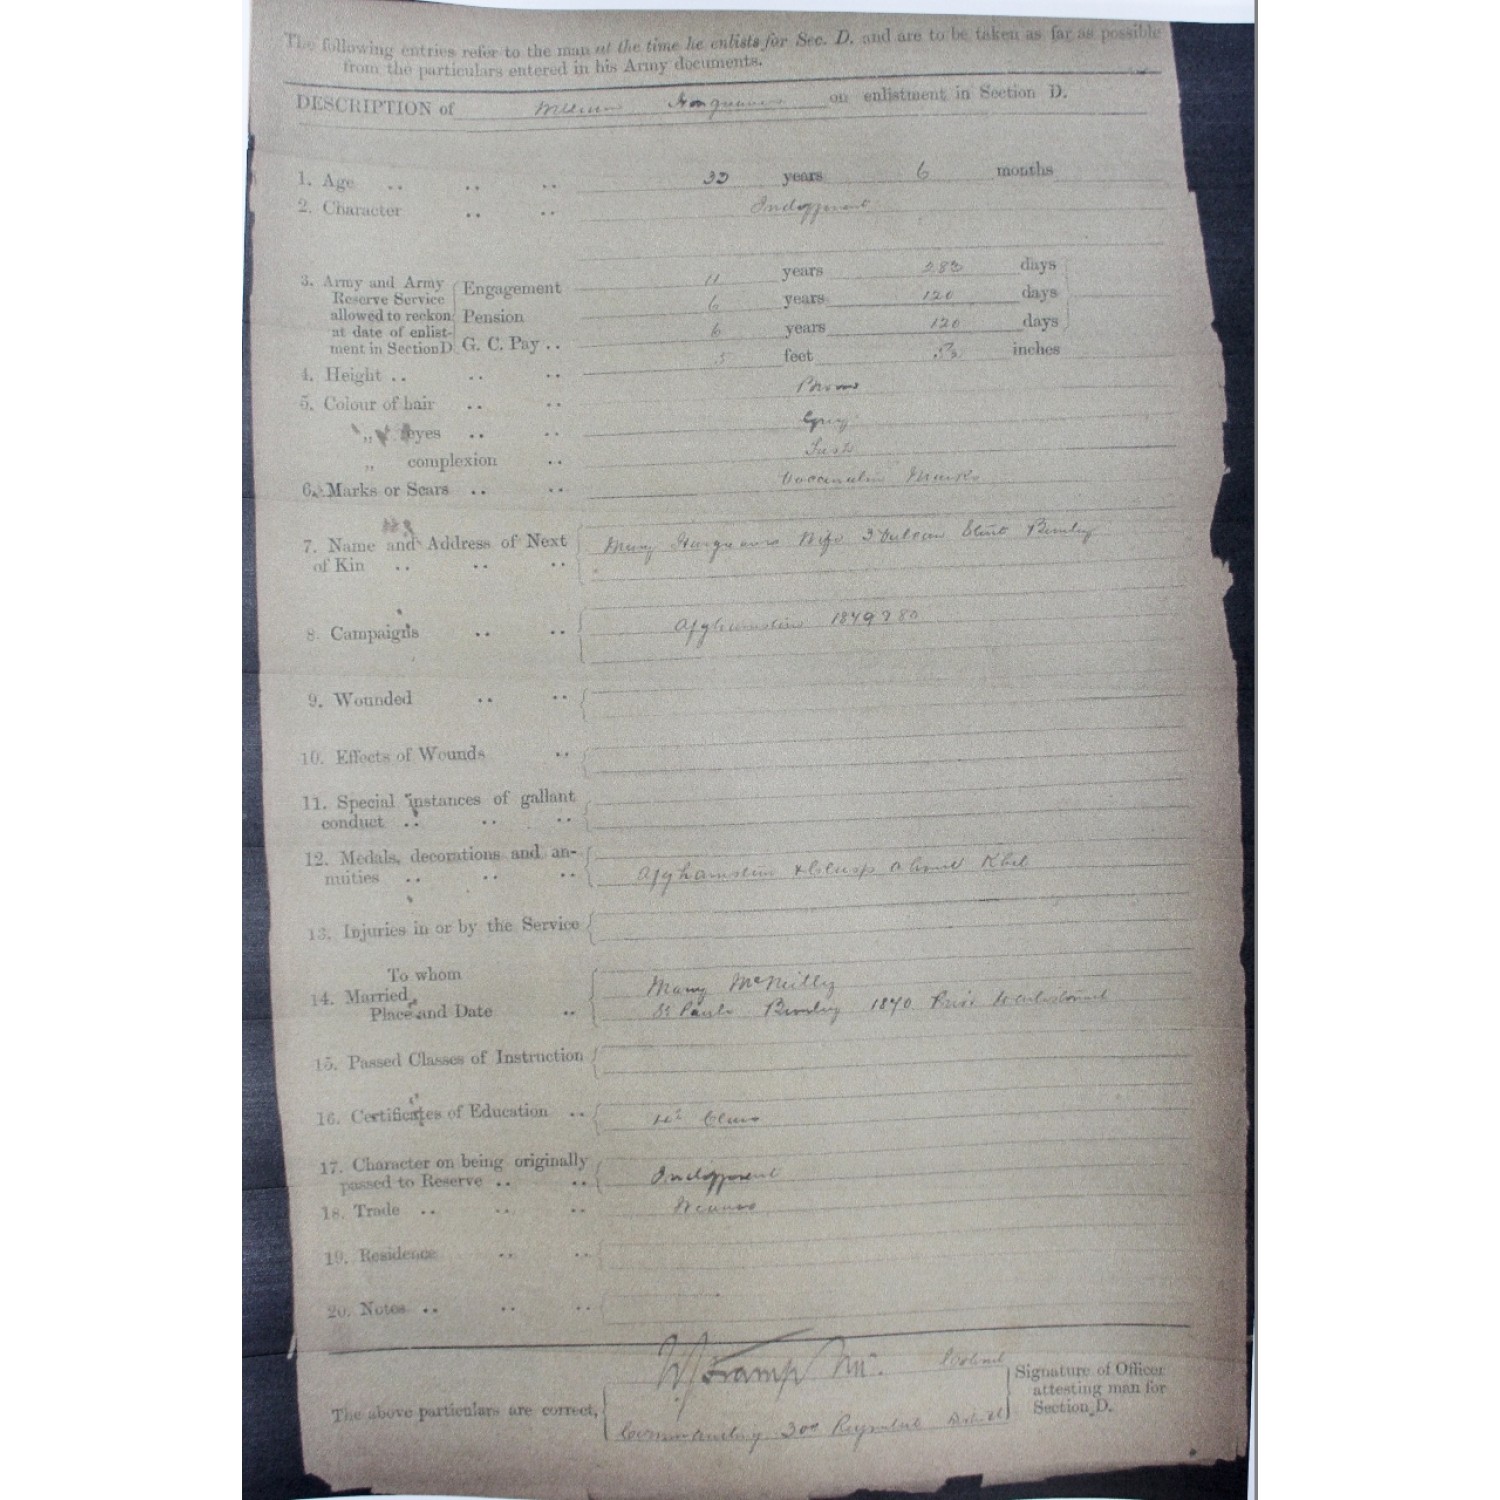 The following entries refer to the man at the time he enlists for Sec. D. and are to be taken as far as possible
from the particulars entered in his Army documents.
DESCRIPTION of William Hargreaves on enlistment in Section D.
1. Age .. .. .. years 6 months
2. Character .. .. Indifferent
3. Army and Army Reserve Service allowed to reckon at date of enlistment in Section D.
Engagement 11 years 283 days
Pension 6 years 120 days
G. C. Pay .. 6 years 120 days
4. Height .. .. .. 5 feet inches
5. Colour of hair .. .. Brown
„ eyes .. .. Grey
„ complexion .. Fresh
6. Marks or Scars .. .. Vaccination Marks
7. Name and Address of Next of Kin .. .. .. Mary Hargreaves Wife 3 Vulcan Street Burnley
8. Campaigns .. .. Afghanistan
9. Wounded .. ..
10. Effects of Wounds ..
11. Special instances of gallant
conduct .. .. ..
12. Medals, decorations and an-
nuities .. .. .. Afghanistan & Clasp Ahmed Khel
13. Injuries in or by the Service
To whom Mary McNeilly
14. Married
Place and Date .. St Pauls Burnley 1870
15. Passed Classes of Instruction
16. Certificates of Education .. Class
17. Character on being originally
passed to Reserve .. .. Indifferent
18. Trade .. .. .. Weaver
19. Residence .. ..
20. Notes .. .. ..
The above particulars are correct,
Commanding 30th Regimental District
Signature of Officer
attesting man for
Section D.